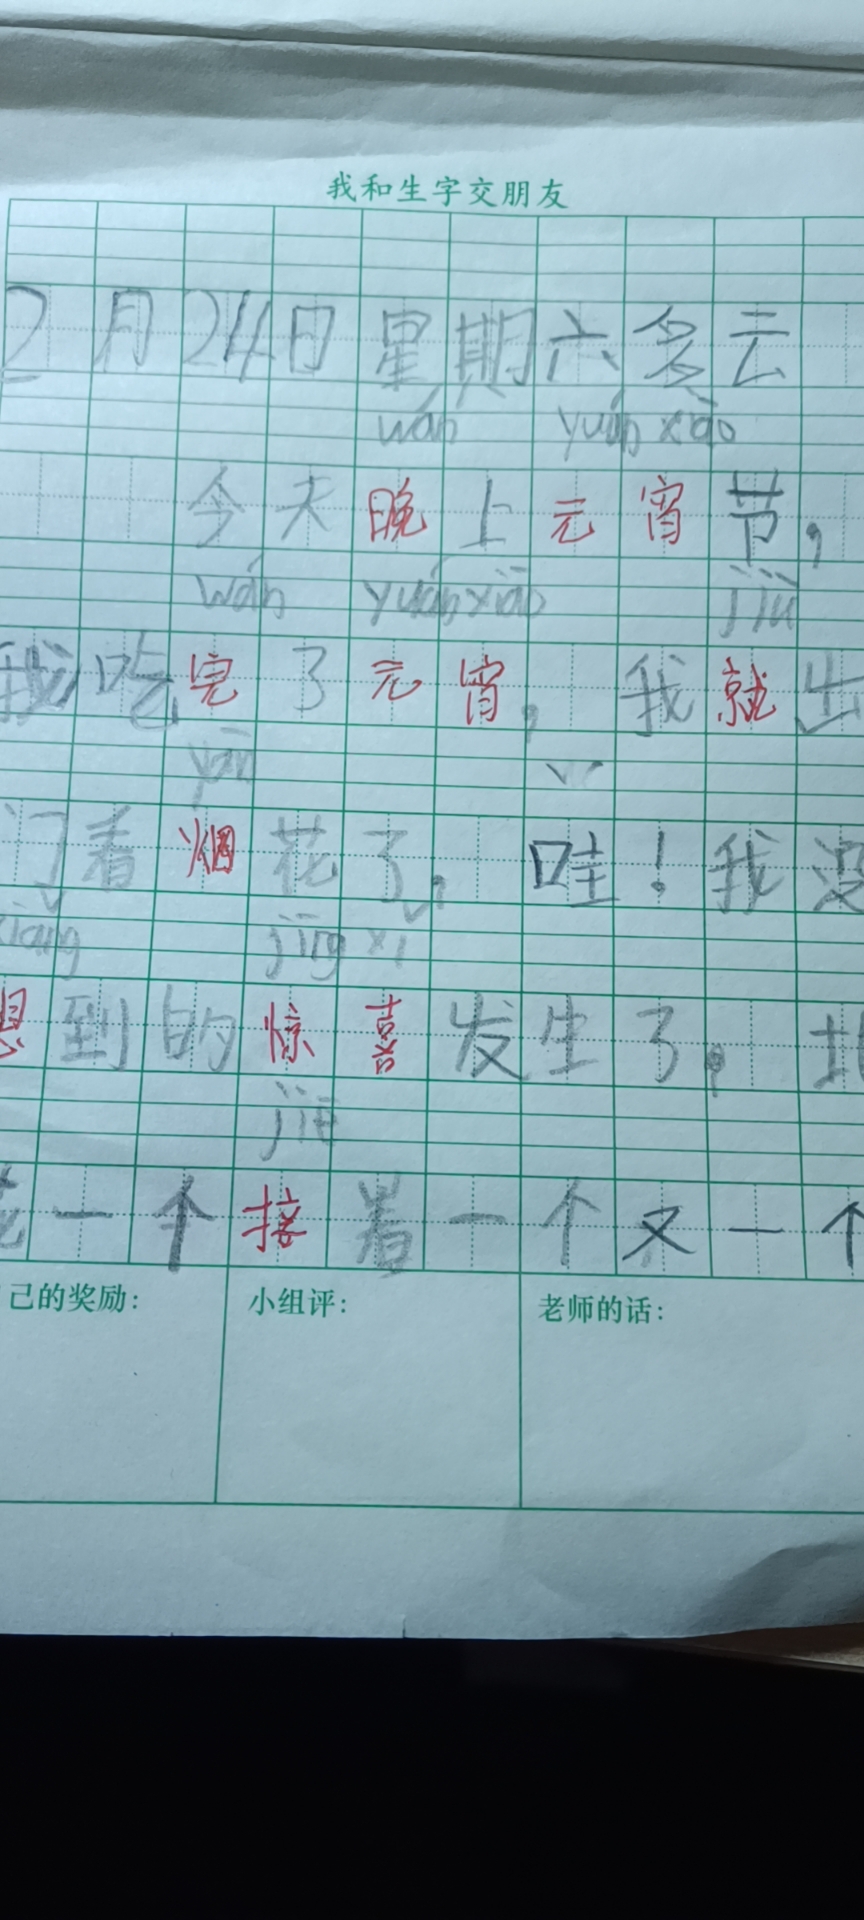 我和生字交朋友
2月24日星期六多云
wán yuán xiāo
今天晚上元宵节，
wán yuán xiāo jiù
我吃完了元宵，我就出
yān
门看烟花了，哇！我没
xiǎng jīng xǐ
想到的惊喜发生了，
jiē
花一个接着一个又一个
己的奖励：
小组评：
老师的话：